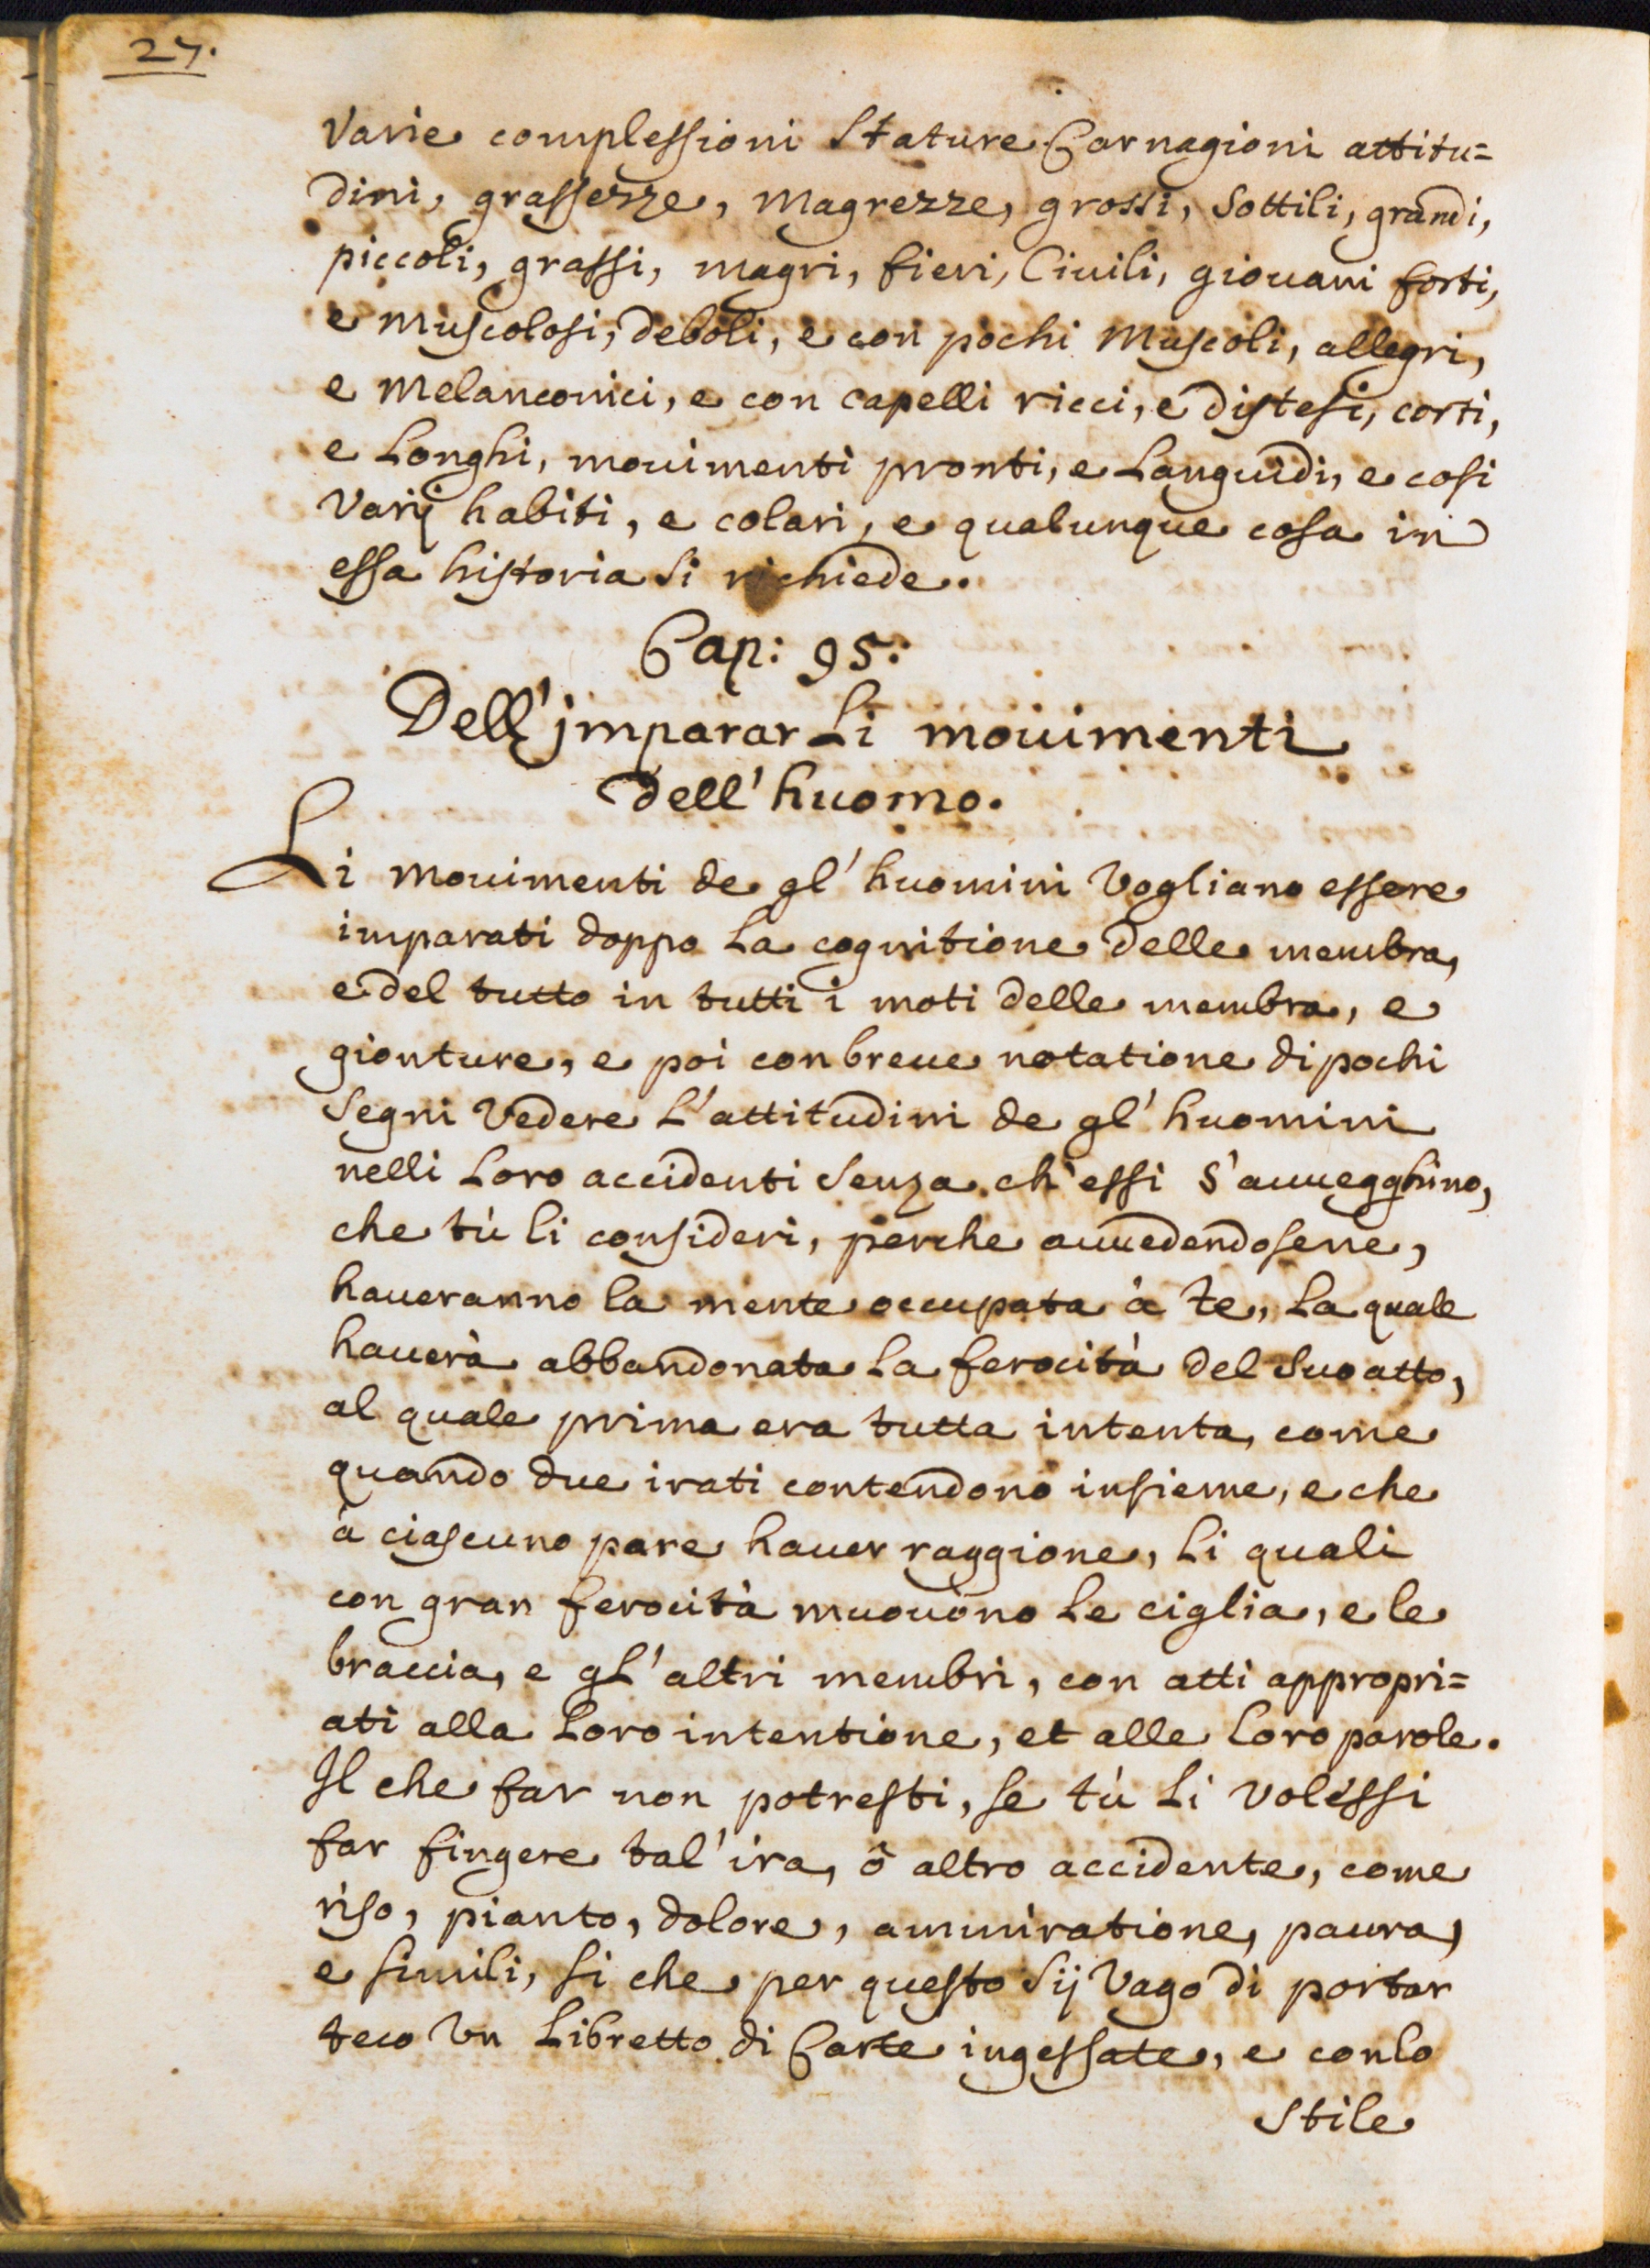 27.
Varie complessioni Stature Carnagioni attitu=
dini, grassezze, Magrezze, grossi, Sottili, grandi,
piccoli, grassi, magri, fieri, Ciuili, giouani forti,
e Muscolosi, deboli, e con pochi Muscoli, allegri,
e Melanconici, e con capelli ricci, e distesi, corti,
e Longhi, mouimenti pronti, e Languidi, e cosi
Varij habiti, e colari, e qualunque cosa in
essa historia si richiede.
Cap: 95:
Dell'jmparar Li mouimenti
dell'huomo.
Li mouimenti de gl'huomini Vogliano essere
imparati doppo La cognitione delle membra,
e del tutto in tutti i moti delle membra, e
gionture, e poi con breue notatione di pochi
Segni Vedere L'attitudini de gl'huomini
nelli Loro accidenti Senza ch'essi S'auuegghino,
che tù li consideri, perche auuedendosene,
haueranno la mente occupata à te, La quale
hauerà abbandonata La ferocità del Suo atto,
al quale prima era tutta intenta, come
quando due irati contendono insieme, e che
à ciascuno pare hauer raggione, Li quali
con gran ferocità muouono Le ciglia, e le
braccia, e gL'altri membri, con atti appropri=
ati alla Loro intentione, et alle Loro parole.
Il che far non potresti, se tù Li Volessi
far fingere tal'ira, ò altro accidente, come
riso, pianto, dolore, ammiratione, paura,
e simili, si che per questo Sij Vago di portar
teco Vn Libretto di Carte ingessate, e conlo
Stile